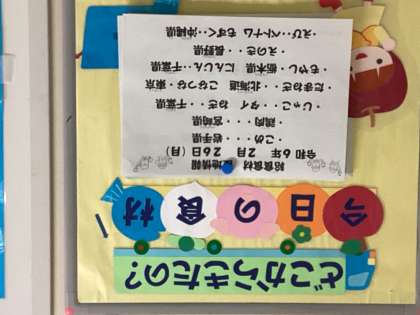 どこからきたの?
今日の食材
給食食材 産地情報
令和6年 2月 26日(月)
こめ・・・岩手県
鶏肉・・・宮崎県
じゃこ・・・タイ ねぎ・・・千葉県
たまねぎ・・・北海道 こまつな・・・東京
もやし・・・栃木県 にんじん・・・千葉県
えのき・・・長野県
えび・・・ベトナム もずく・・沖縄県